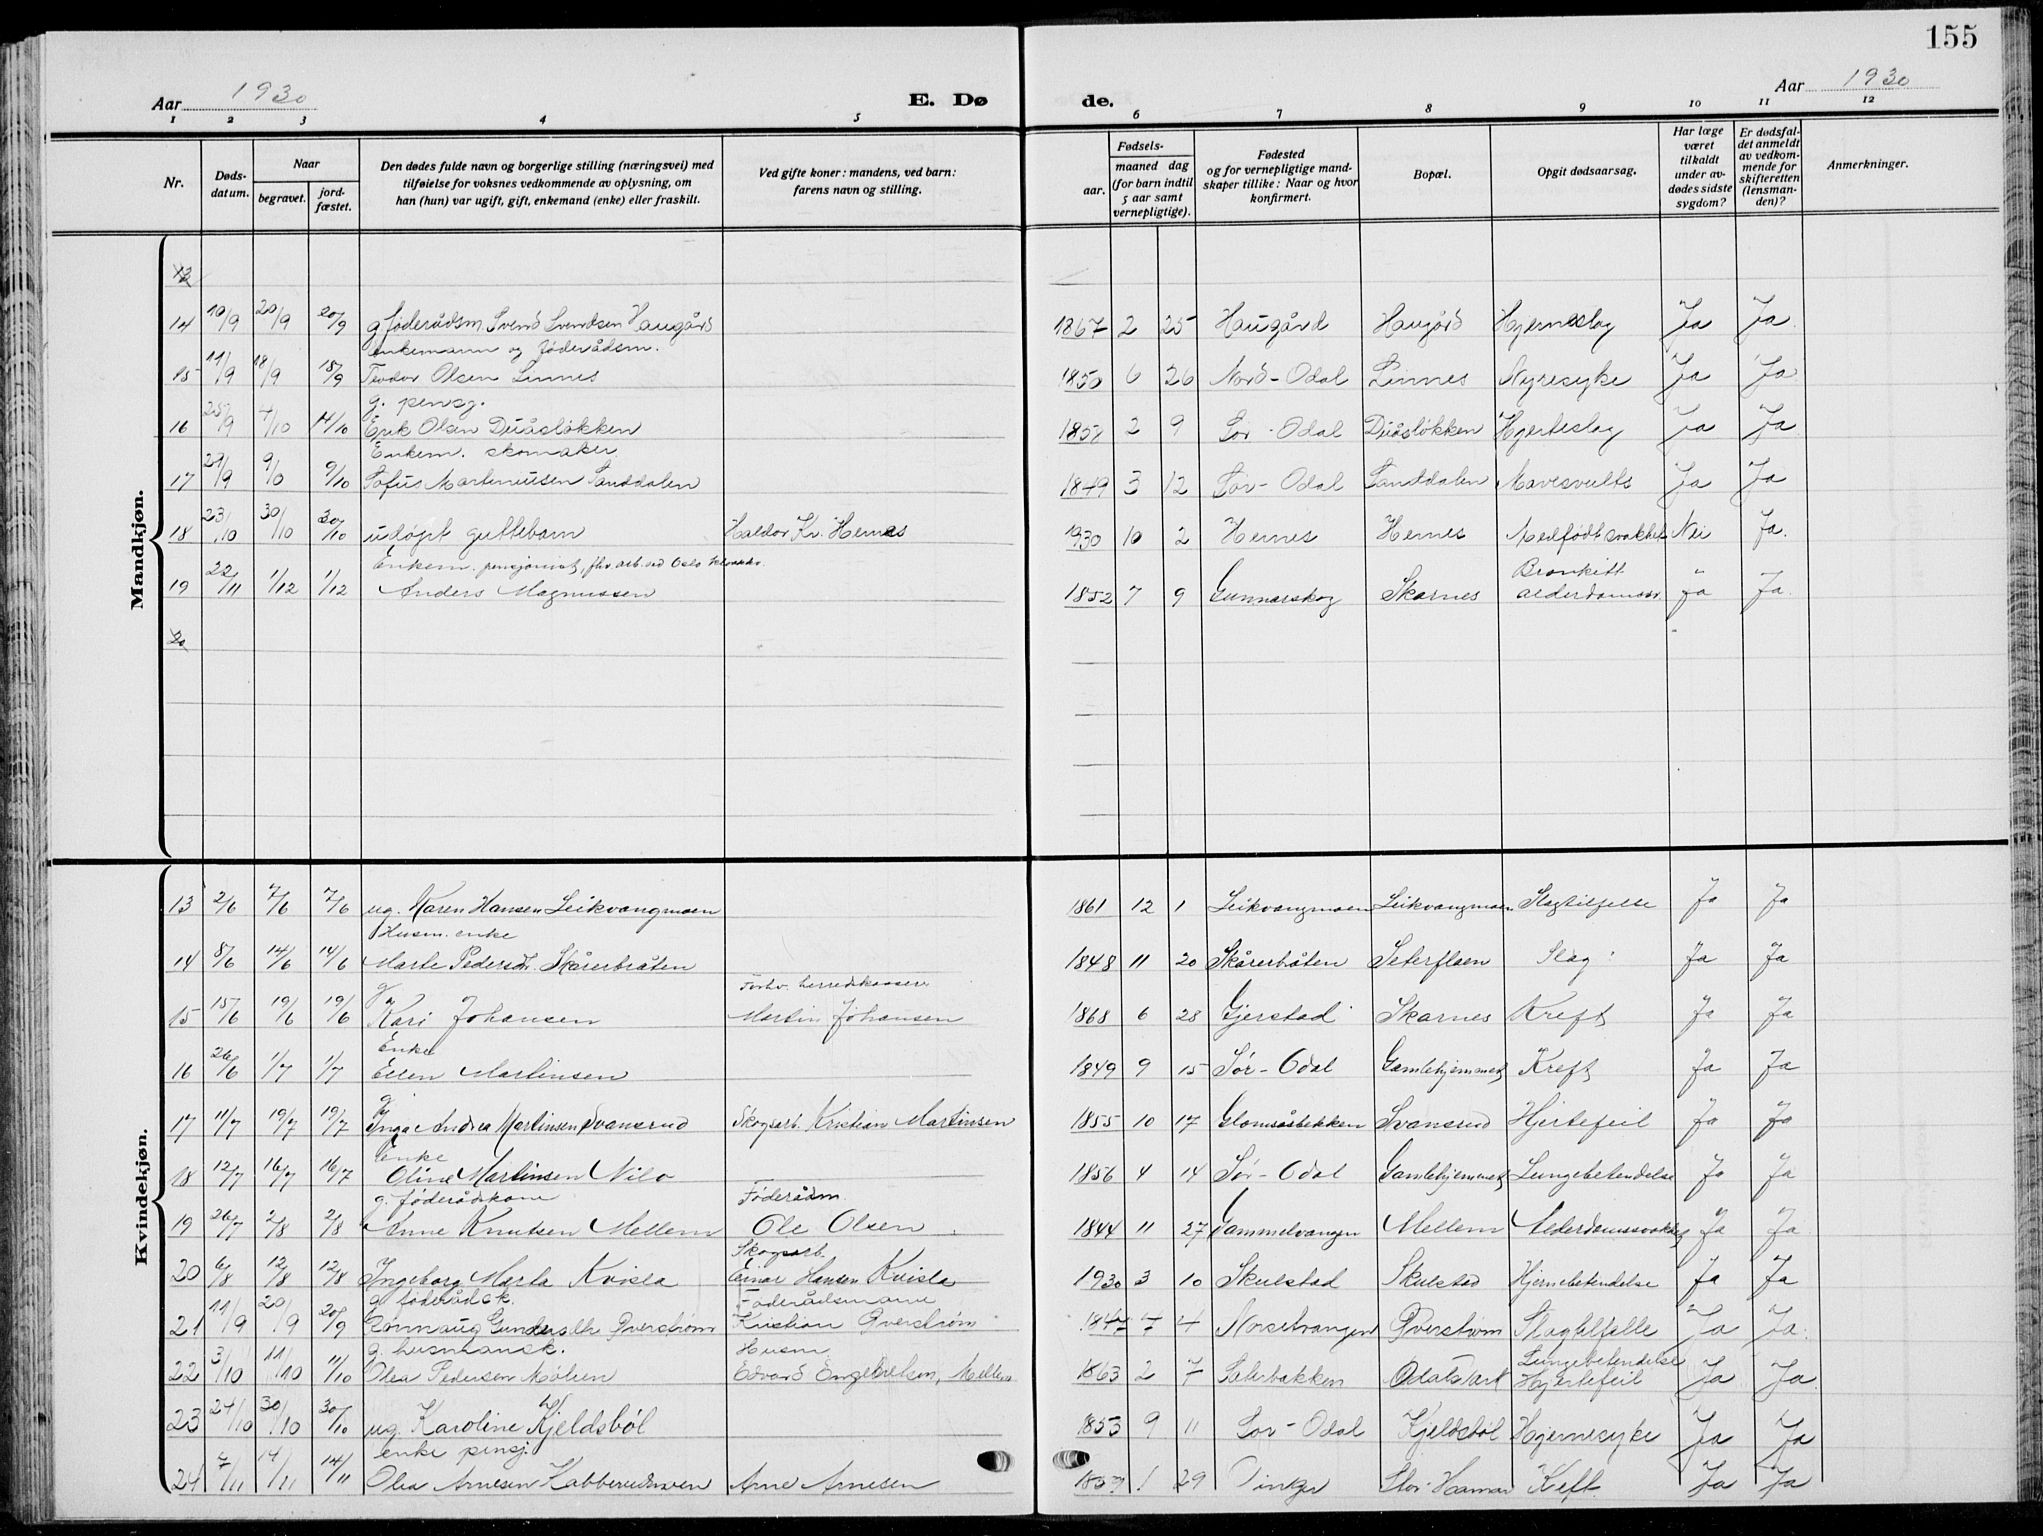 155
Aar 1930
E. Dø
de.
Aar 1930
1 2 3 4 5 6 7 8 9 10 11 12
Nr.
Døds-
datum.
Naar
begravet.
jord-
fæstet.
Den dødes fulde navn og borgerlige stilling (næringsvei) med
tilføielse for voksnes vedkommende av oplysning, om
han (hun) var ugift, gift, enkemand (enke) eller fraskilt.
Ved gifte koner: mandens, ved barn:
farens navn og stilling.
Fødsels-
aar.
maaned dag
(for barn indtil
5 aar samt
vernepligtige).
Fødested
og for vernepligtige mand-
skaper tillike: Naar og hvor
konfirmert.
Bopæl.
Opgit dødsaarsag.
Har læge
været
tilkaldt
under av-
dødes sidste
sygdom?
Er dødsfal-
det anmeldt
av vedkom-
mende for
skifteretten
(lensman-
den)?
Anmerkninger.
Mandkjøn.
13
14 19/9 20/9 20/9 g. føderådsm. Svend Svendsen Haugård 1867 2 25 Haugård Haugård Hjerneslag Ja Ja
enkemann og føderådsm.
15 11/9 18/9 18/9 Teodor Olsen Linnes 1850 6 26 Nord-Odal Linnes Nyresyke Ja Ja
g. pensj.
16 25/9 4/10 14/10 Erik Olsen Duåsløkken 2 9 Sør-Odal Duåsløkken Hjerteslag Ja Ja
Enkem. skomaker
17 29/9 9/10 9/10 Sofus Martinusen Sanddalen 1849 3 12 Sør-Odal Sanddalen Mavesvulst Ja Ja
18 23/10 30/10 30/10 udøpt guttebarn Haldor Kr. Hernes 1930 10 2 Hernes Hernes Medfødt svakhet Nei Ja.
Enkem. pensjonist, fhv. arb. ved Oslo Bronkitt
19 22/11 1/12 1/12 Anders Magnussen 1852 7 9 Gunnarskog Skarnes alderdomssv. Ja Ja
20
Kvindekjøn.
13 2/6 7/6 7/6 ug. Karen Hansen Leikvangmoen 1861 12 1 Leikvangmoen Leikvangmoen Slagtilfelle Ja Ja
Husm. enke
14 8/6 14/6 14/6 Marte Pedersdr. Skårerbråten 1848 11 20 Skårerbråten Seterflaen Slag Ja Ja
g. Forhv. herredskasserer
15 15/6 19/6 19/6 Kari Johansen Martin Johansen 1868 6 28 Gjerstad Skarnes Kreft Ja Ja
Enke
16 26/6 1/7 1/7 Ellen Martinsen 1849 9 15 Sør-Odal Gamlehjemmet Kreft Ja Ja
g.
17 11/7 19/7 19/7 Inga Andrea Martinsen Svansrud Skogsarb. Kristian Martinsen 1855 10 17 Glomsåsbekken Svansrud Hjertefeil Ja Ja
Enke
18 12/7 16/7 16/7 Oline Martinsen Nilo 1856 4 14 Sør-Odal Gamlehjemmet Lungebetendelse Ja Ja
g. føderådskone Føderådsm.
19 26/7 2/8 2/8 Anne Knutsen Mellem Ole Olsen 1844 11 27 Gammelvangen Mellem Alderdomssvakhet Ja Ja
Skogsarb.
20 6/8 12/8 12/8 Ingeborg Marta Kvisla Einar Hansen Kvisla 1930 3 10 Skulstad Skulstad Hjernebetendelse Ja Ja
g. føderådsk. Føderådsmann
21 11/9 20/9 20/9 Rønnaug Gundersdtr. Øverstrøm Kristian Øverstrøm 4 Norsetvangen Øverstrøm Slagtilfelle Ja Ja
g. husmannsk. Husm. Lungebetendelse
22 3/10 11/10 11/10 Olea Pedersen Molien Edvard Engebretsen, Mellem 1863 2 7 Seterbakken Odalsverk Hjertefeil Ja Ja
23 24/10 30/10 30/10 ug. Karoline Kjeldsbøl 1853 9 11 Sør-Odal Kjeldsbøl Hjernesyke Ja Ja
enke pensj.
24 7/11 14/11 14/11 Olea Arnesen Kabberudmoen Arne Arnesen 1 29 Vinger Stor-Hamar Kreft Ja Ja